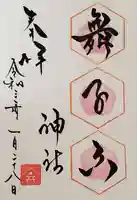 舞子六
神社
奉拝
令和三年
一月二十八日